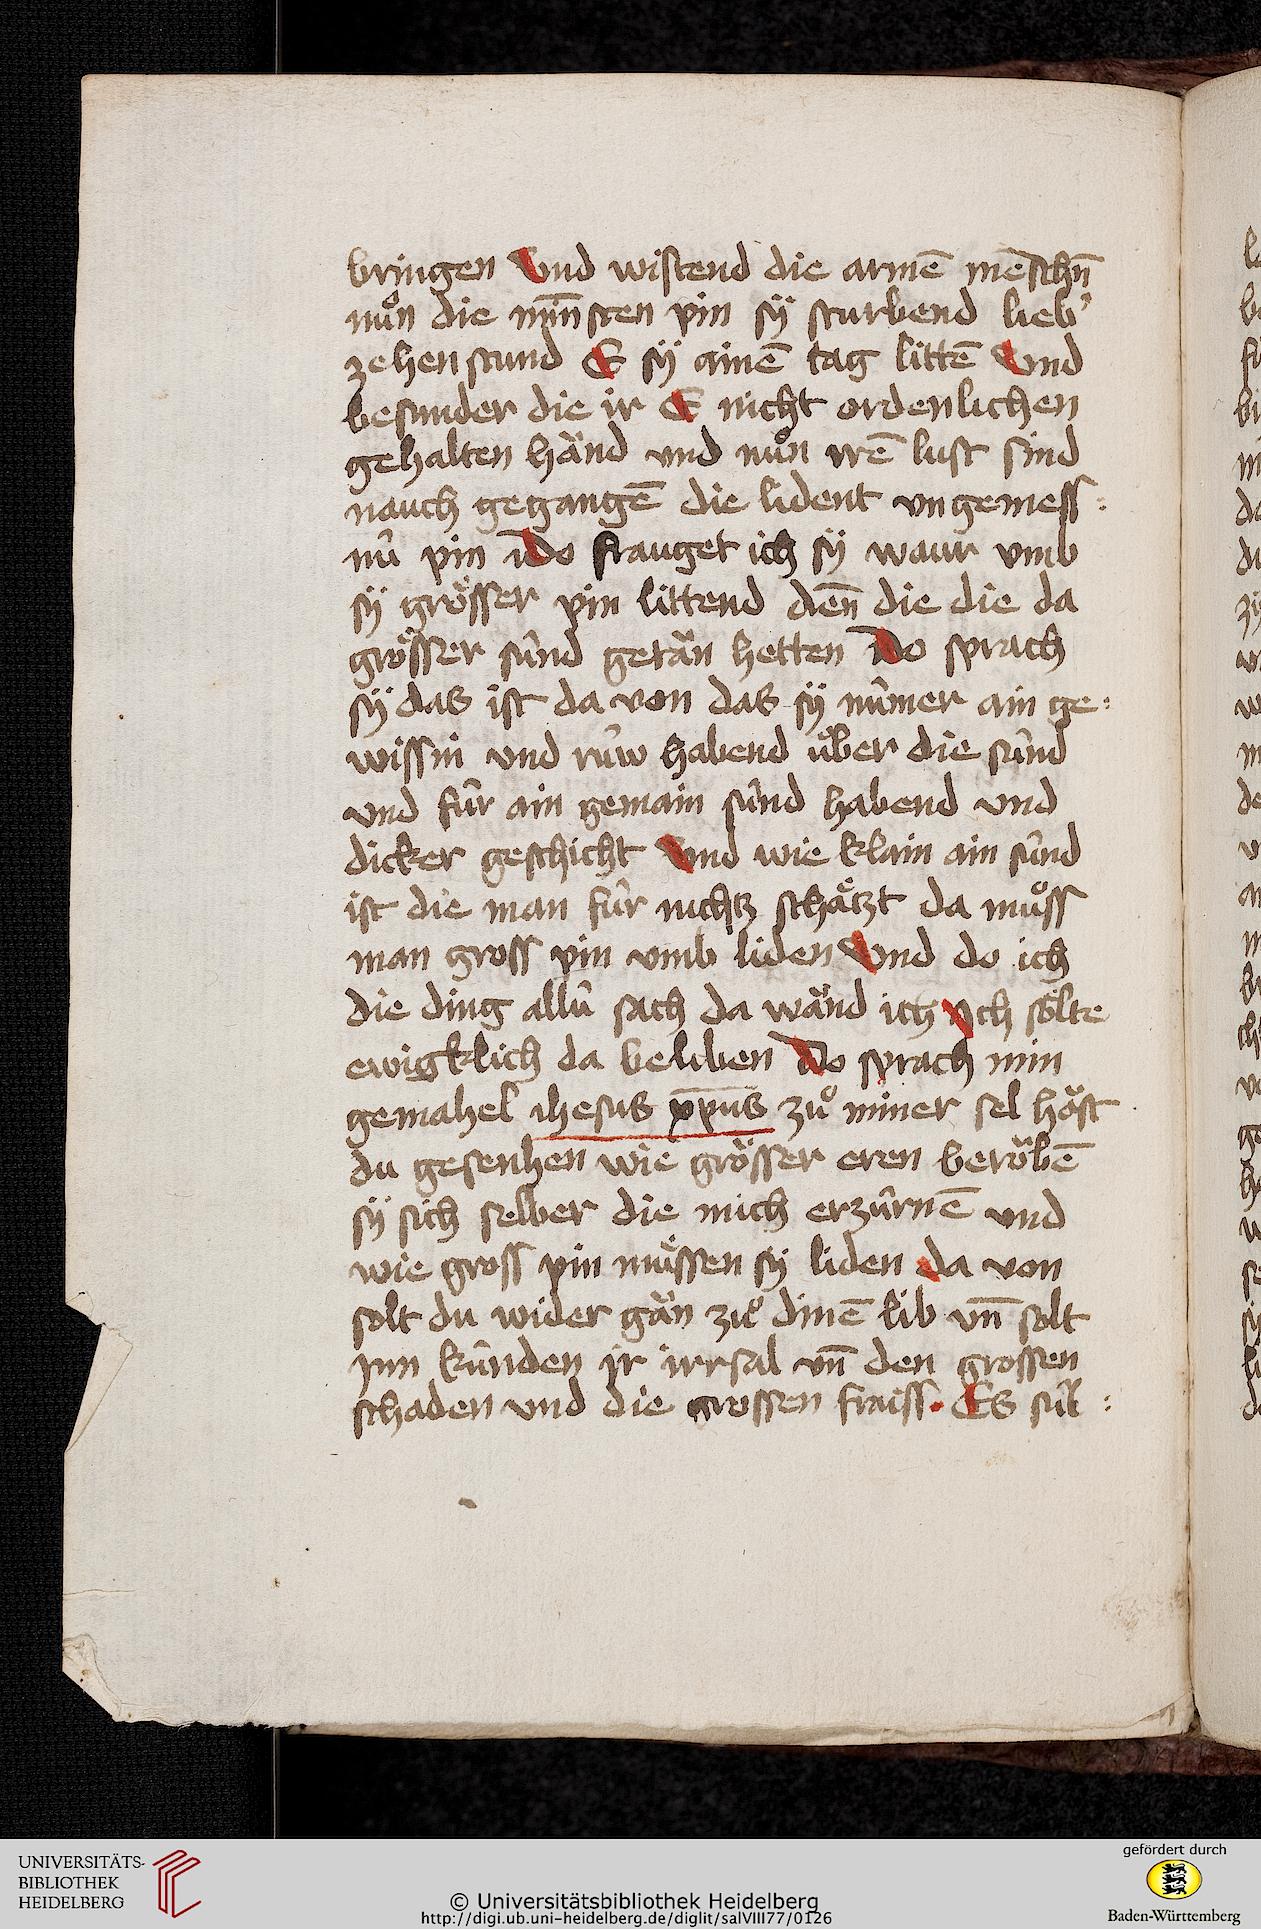 bringen Vnd wistend die armē mēschn̄
nuͦn die min̄sten pin sÿ sturbend lieb'
zehenstund E sÿ ainē tag littē Vnd
besunder die ir E nicht ordenlichen
gehalten händ vnd nuͦn irē lust sind
nauch gegangē die lident vngemess:
nû pin Do frauget ich sÿ waur vmb
sÿ grösser pin littend den̄ die die da
grösser sûnd getän hetten Do sprach
sÿ das ist da von das sÿ nûmer ain ge:
wissin vnd rûw habend über die sûnd
vnd fûr ain gemain sûnd habend vnd
dicker geschicht Vnd wie klain ain sûnd
ist die man fûr nichtz schätzt da muͦss
man gross pin vmb liden Vnd do ich
die ding allû sach da wänd ich Ich sölte
ewigklich da beliben Do sprach min
gemahel ihesus xp̄us zuͦ miner sel häst
du gesenhen wie grösser eren beröbē
sÿ sich selber die mich erzûrnē vnd
wie gross pin müssen sÿ liden da von
solt du wider gän zuͦ dinē lib vn̄ solt
Inn kûnden ir irrsal vn̄ den grossen
schaden vnd die grossen fraiss. Es sûl:
UNIVERSITÄTS-
BIBLIOTHEK
HEIDELBERG
© Universitätsbibliothek Heidelberg
http://digi.ub.uni-heidelberg.de/diglit/salVIII77/0126
gefördert durch
Baden-Württemberg